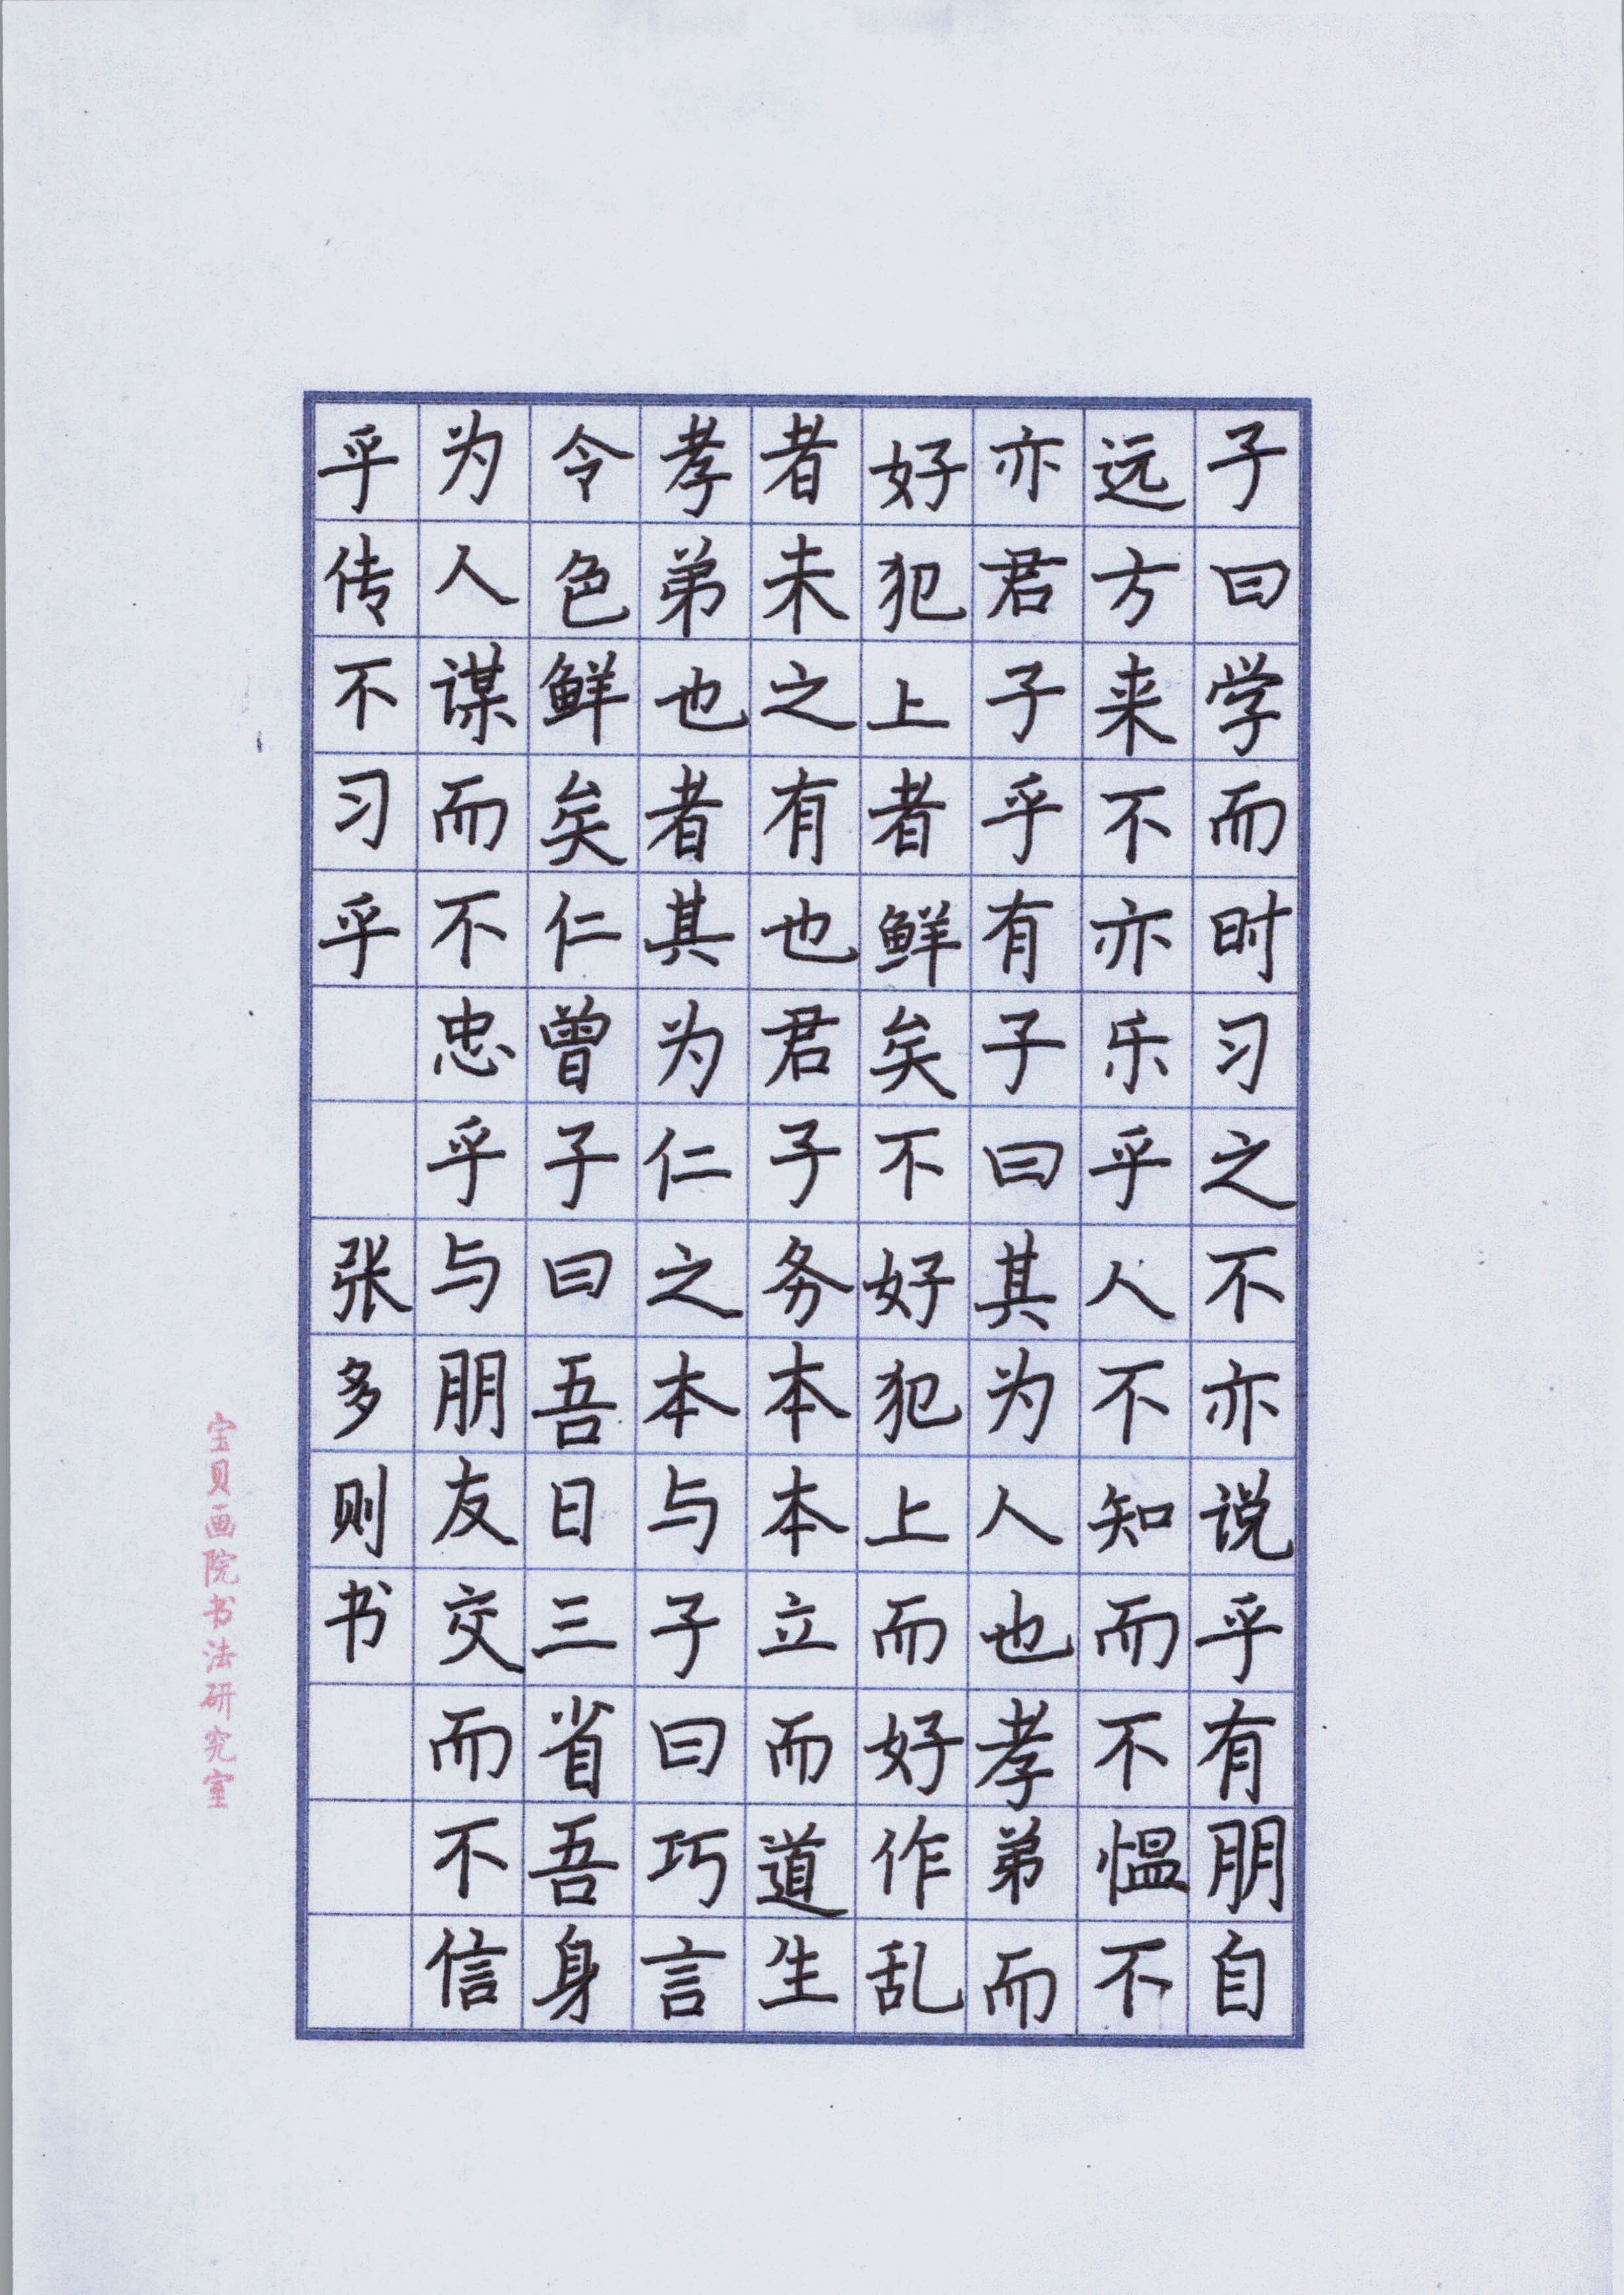 子曰学而时习之不亦说乎有朋自
远方来不亦乐乎人不知而不愠不
亦君子乎有子曰其为人也孝弟而
好犯上者鲜矣不好犯上而好作乱
者未之有也君子务本本立而道生
孝弟也者其为仁之本与子曰巧言
令色鲜矣仁曾子曰吾日三省吾身
为人谋而不忠乎与朋友交而不信
乎传不习乎 张多则书
宝贝画院书法研究室